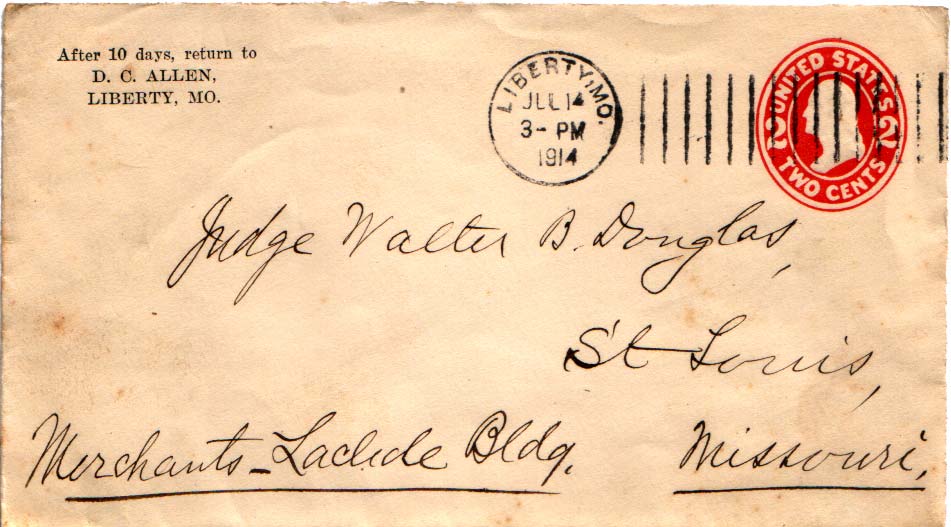 After 10 days, return to
D. C. ALLEN,
LIBERTY, MO.
LIBERTY, MO.
JUL 14
3- PM
1914
UNITED STATES
2 2
TWO CENTS
Judge Walter B. Douglas,
St Louis,
Merchants-Laclede Bldg. Missouri,